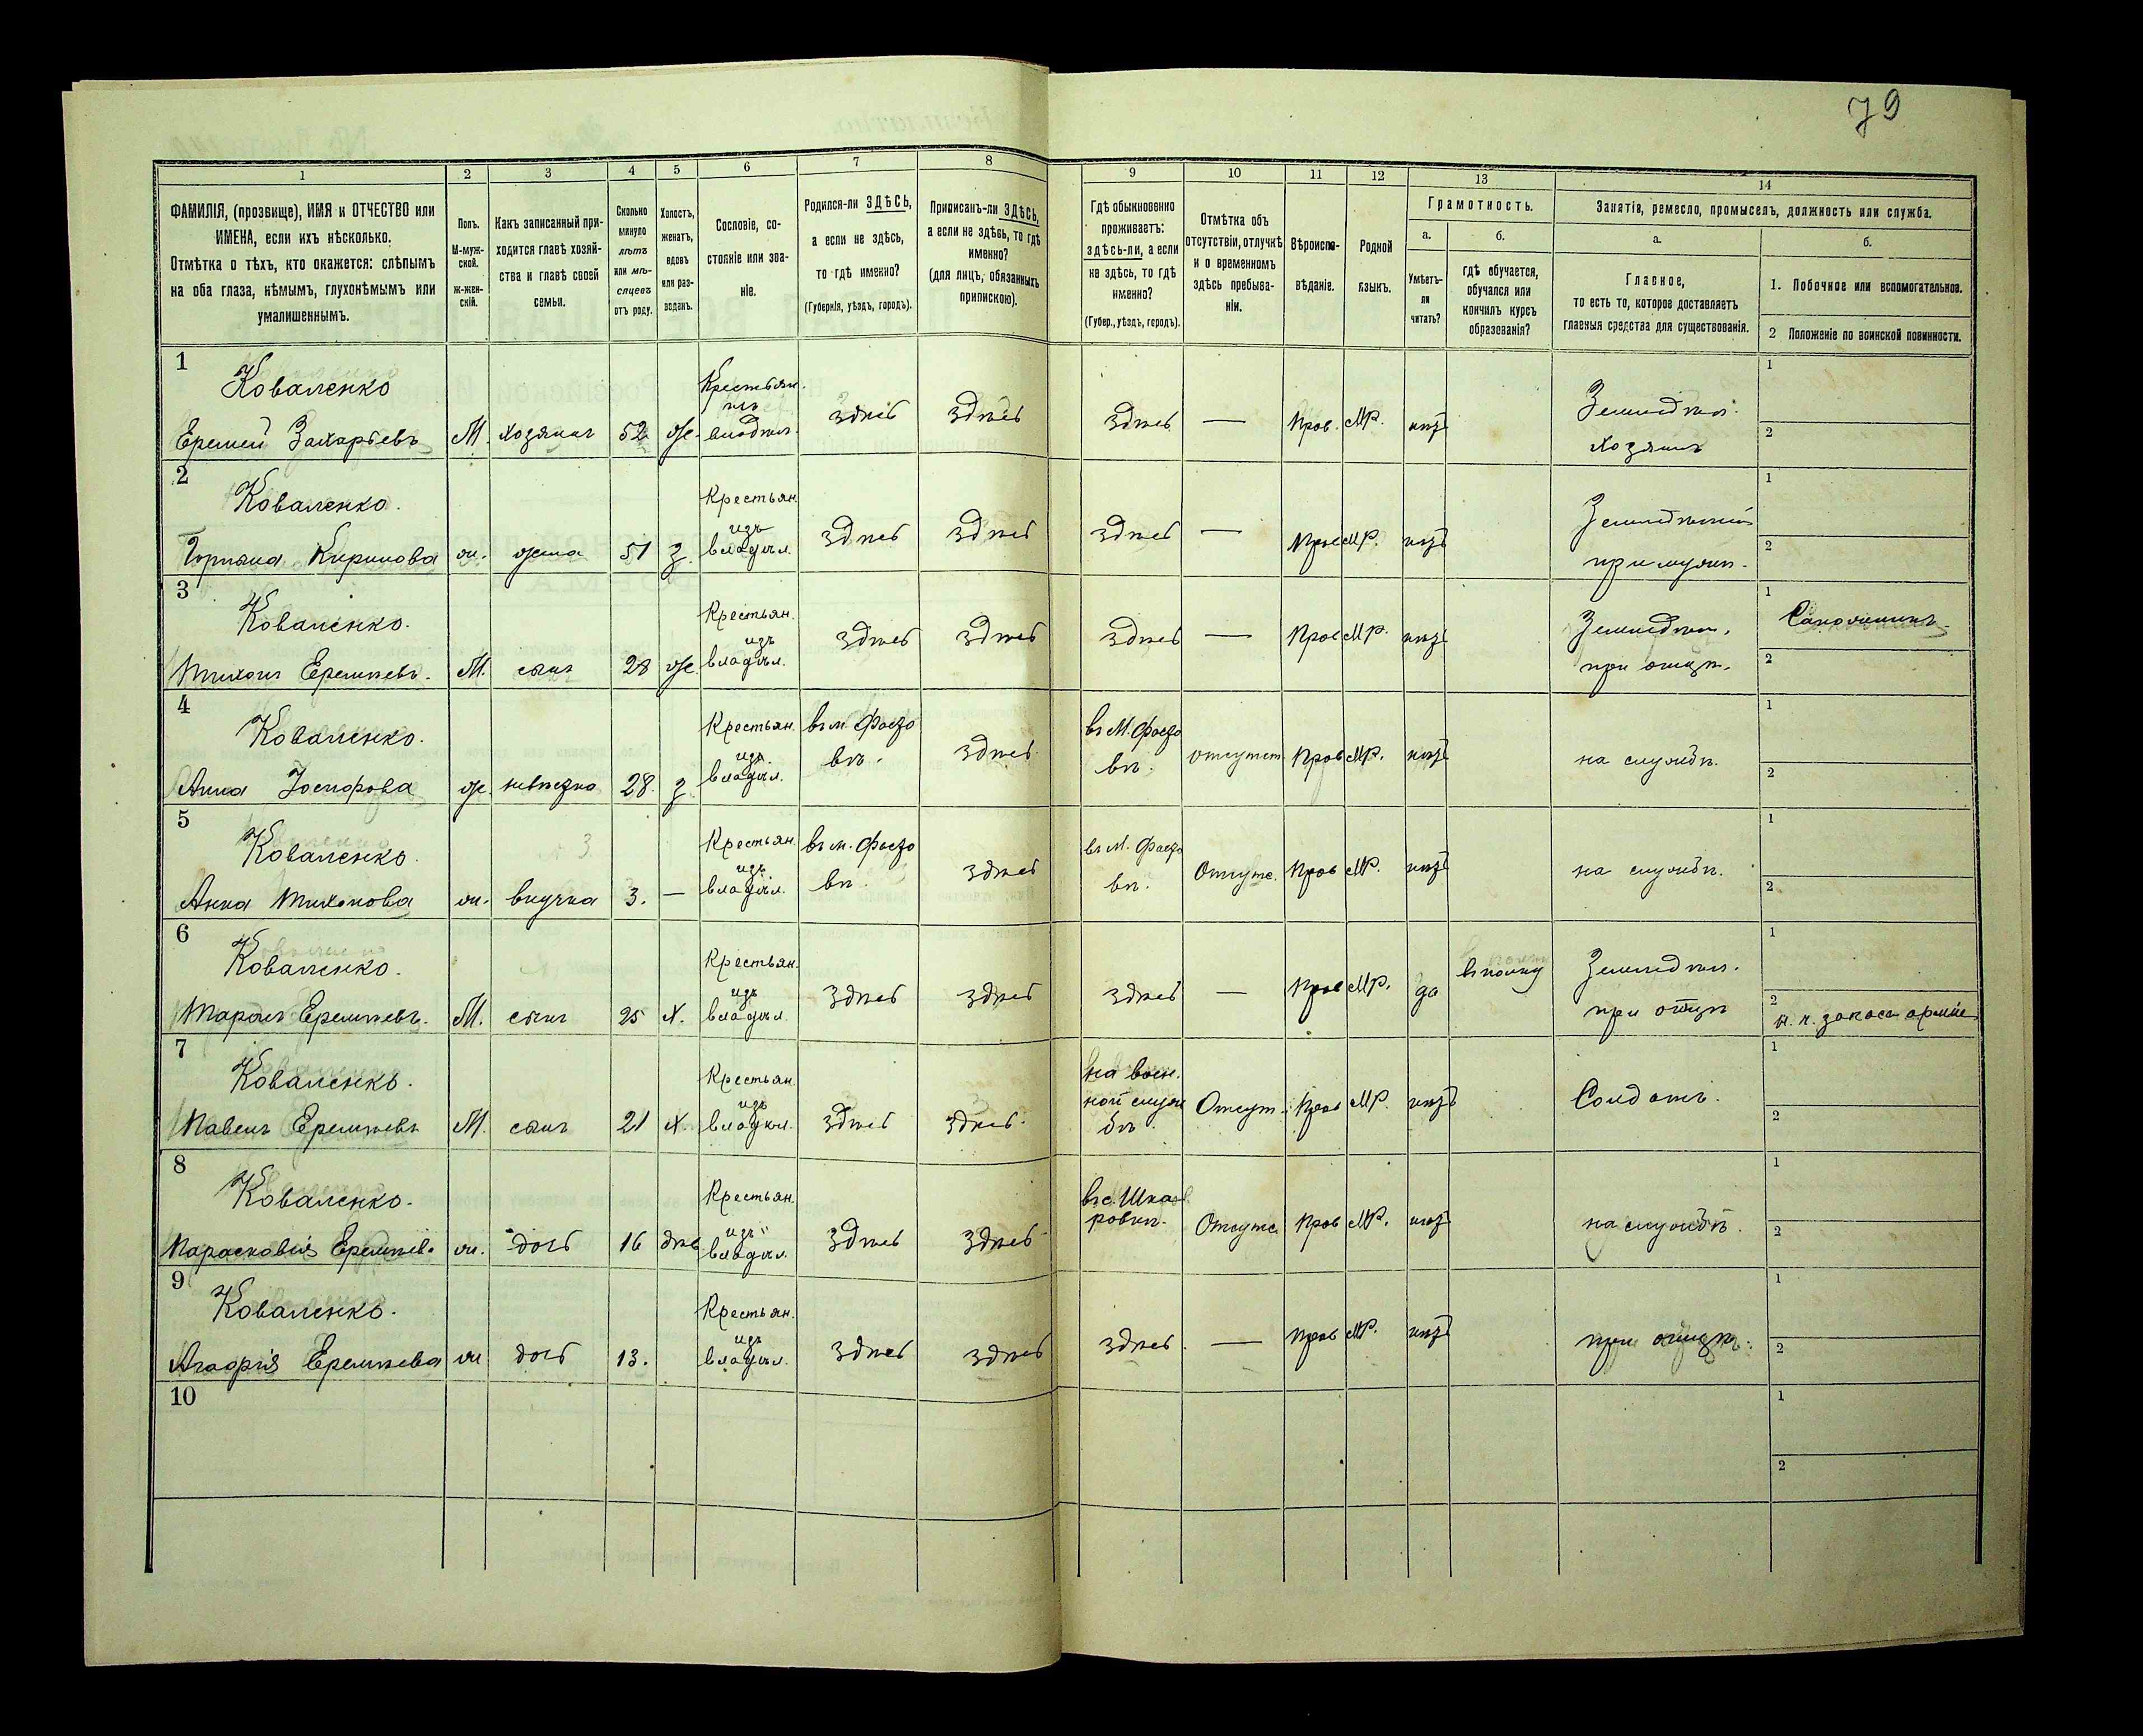 79
1 2 3 4 5 6 7 8 9 10 11 12 13 14
ФАМИЛІЯ, (прозвище), ИМЯ и ОТЧЕСТВО или
ИМЕНА, если ихъ нѣсколько.
Отмѣтка о тѣхъ, кто окажется: слѣпымъ
на оба глаза, нѣмымъ, глухонѣмымъ или
умалишеннымъ.
Полъ.
М-муж-
ской.
Ж-жен-
скій.
Какъ записанный при-
ходится главѣ хозяй-
ства и главѣ своей
семьи.
Сколько
минуло
лѣтъ
или мѣ-
сяцевъ
отъ роду.
Холостъ,
женатъ,
вдовъ
или раз-
веденъ.
Сословіе, со-
стояніе или зва-
ніе.
Родился-ли ЗДѢСЬ,
а если не здѣсь,
то гдѣ именно?
(Губернія, уѣздъ, городъ).
Приписанъ-ли ЗДѢСЬ,
а если не здѣсь, то гдѣ
именно?
(для лицъ, обязанныхъ
припискою).
Гдѣ обыкновенно
проживаетъ:
здѣсь-ли, а если
не здѣсь, то гдѣ
именно?
(Губер., уѣздъ, городъ).
Отмѣтка объ
отсутствіи, отлучкѣ
и о временномъ
здѣсь пребыва-
ніи.
Вѣроиспо-
вѣданіе.
Родной
языкъ.
Грамотность.
а.
Умѣетъ-
ли
читать?
б.
гдѣ обучается,
обучался или
кончилъ курсъ
образованія?
Занятія, ремесло, промыселъ, должность или служба.
а.
Главное,
то есть то, которое доставляетъ
главныя средства для существованія.
б.
1. Побочное или вспомогательное.
2 Положеніе по воинской повинности.
1
Коваленко
Еремей Захарьевъ М. хозяинъ 52 ж. Крестьян. изъ владѣл. здѣсь здѣсь здѣсь — Прав. МР. нѣтъ
Земледѣл.
хозяинъ
1
2
2
Коваленко.
Кирилова ж. жена 51 з. Крестьян. изъ владѣл. здѣсь здѣсь здѣсь — Прав МР. нѣтъ
при мужѣ.
1
2
3
Коваленко.
Тихонъ Еремѣевъ. М. сынъ 28 ж. Крестьян. изъ владѣл. здѣсь здѣсь здѣсь — Прав МР. нѣтъ
Земледѣл.
при отцѣ.
1
Сапожникъ.
2
4
Коваленко.
Анна Іосифова ж. невѣстка 28. з Крестьян. изъ владѣл. здѣсь отсутст. Прав МР. нѣтъ
на службѣ.
1
2
5
Коваленко.
Анна Тихонова ж. внучка 3. — Крестьян. изъ владѣл. здѣсь Отсутс. Прав МР. нѣтъ
на службѣ.
1
2
6
Коваленко.
Еремѣевъ. М. сынъ 25 х. Крестьян. изъ владѣл. здѣсь здѣсь здѣсь — Прав МР. да въ полку
Земледѣл.
при отцѣ
1
2
7
Коваленко.
Павелъ Еремѣевъ М. сынъ 21 х. Крестьян. изъ владѣл. здѣсь здѣсь.
на воен.
ной служ
бѣ.
Отсут. Прав МР. нѣтъ Солдатъ.
1
2
8
Коваленко.
Парасковія Еремѣев. ж. дочь 16 дѣв Крестьян. изъ владѣл. здѣсь здѣсь
въ с. Шка
ровкѣ.
Отсутс. Прав МР. нѣтъ на службѣ.
1
2
9
Коваленко.
Агафія Еремѣева ж дочь 13. Крестьян. изъ владѣл. здѣсь здѣсь здѣсь. — Прав МР. нѣтъ при отцѣ.
1
2
10
1
2